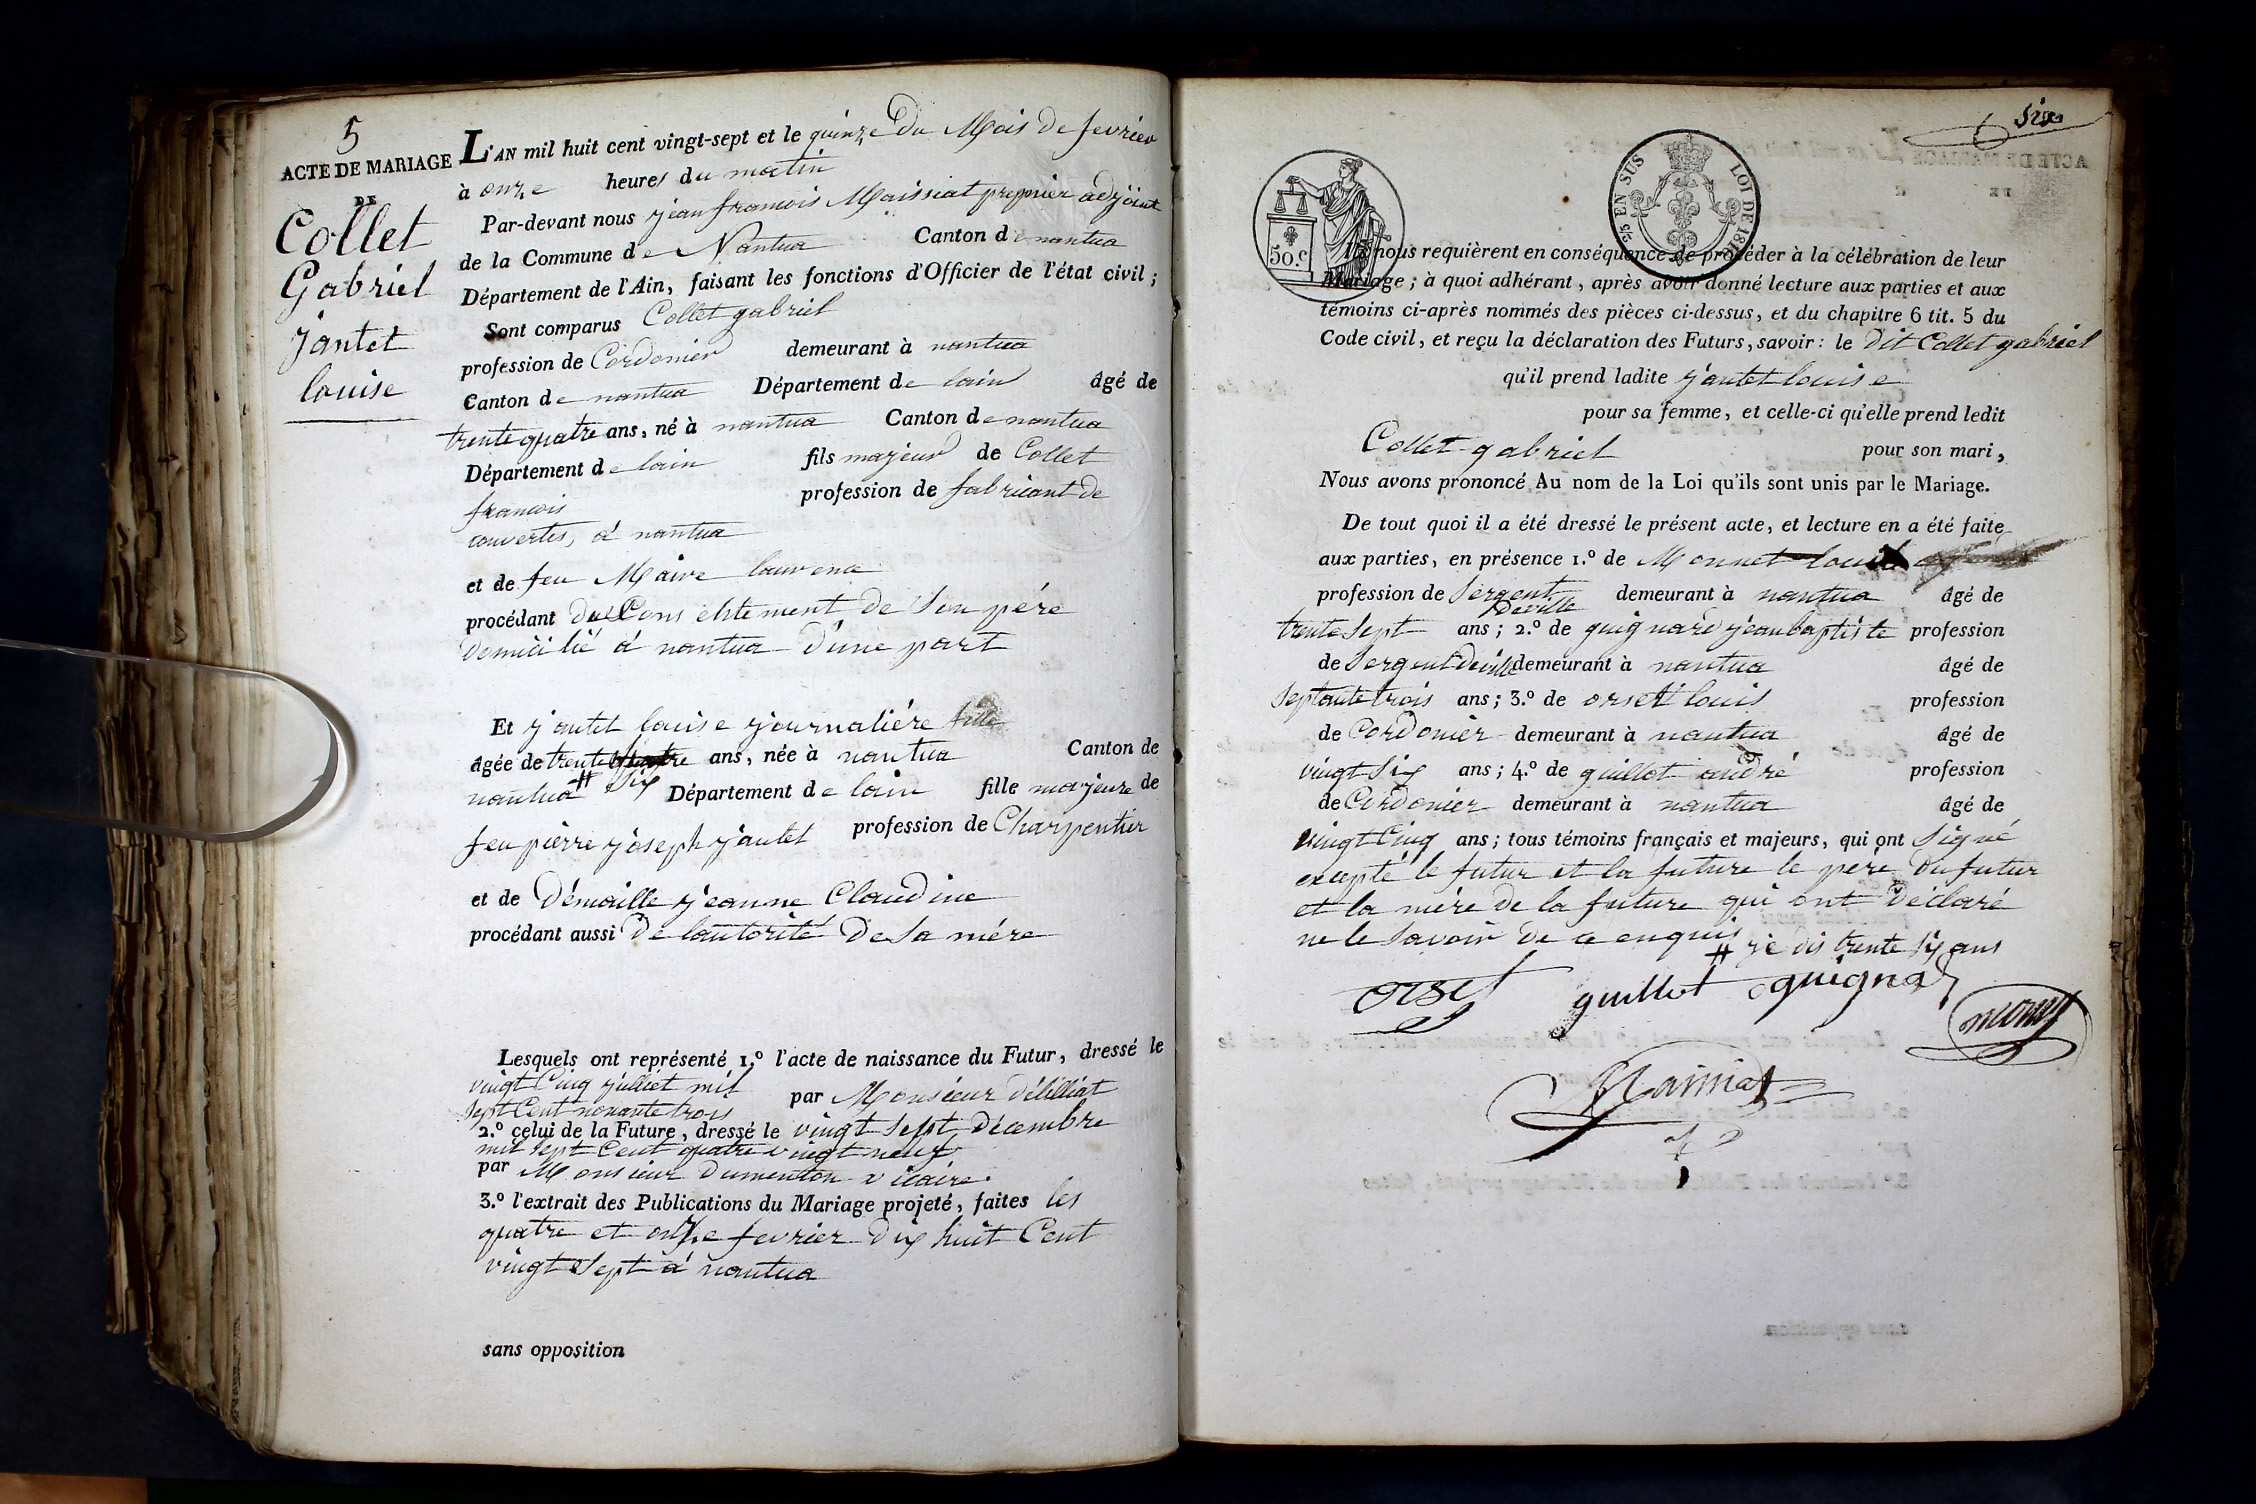 5
ACTE DE MARIAGE
DE
Collet
Gabriel
jantet
louise
L'AN mil huit cent vingt-sept et le quinze du Mois de fevrier
à onze heures du matin
Par-devant nous jean francois Maissiat premier adjoint
de la Commune de Nantua Canton de nantua
Département de l'Ain, faisant les fonctions d'Officier de l'état civil ;
Sont comparus Collet gabriel
profession de Cordonier demeurant à nantua
Canton de nantua Département de lain âgé de
trente quatre ans, né à nantua Canton de nantua
Département de lain fils majeur de Collet
francois profession de fabricant de
couvertes, à nantua
et de feu Maire laurence
procédant du Consentement de Son père
domicilié à nantua d'une part
Et jantet louise journalière fille
âgée de trente quatre ans, née à nantua Canton de
nantua # Six Département de lain fille majeure de
feu pierre joseph jantet profession de Charpentier
et de Démaille jeanne Claudine
procédant aussi de lautorité de Sa mére
Lesquels ont représenté 1.º l'acte de naissance du Futur, dressé le
vingt Cinq juillet mil
sept Cent nonante trois par Monsieur Délilliat
2.º celui de la Future, dressé le vingt Sept décembre
mil sept Cent quatre vingt neuf
par Monsieur Dumenton vicaire
3.º l'extrait des Publications du Mariage projeté, faites les
quatre et onze fevrier dix huit Cent
vingt Sept à nantua
sans opposition
Six
50.C
2/5 EN SUS LOI DE 1816
Ils nous requièrent en conséquence de procéder à la célébration de leur
Mariage ; à quoi adhérant, après avoir donné lecture aux parties et aux
témoins ci-après nommés des pièces ci-dessus, et du chapitre 6 tit. 5 du
Code civil, et reçu la déclaration des Futurs, savoir : le dit Collet gabriel
qu'il prend ladite jantet louise
pour sa femme, et celle-ci qu'elle prend ledit
Collet gabriel pour son mari,
Nous avons prononcé Au nom de la Loi qu'ils sont unis par le Mariage.
De tout quoi il a été dressé le présent acte, et lecture en a été faite
aux parties, en présence 1.º de Monnet louis
profession de Sergent Deville demeurant à nantua âgé de
trente Sept ans ; 2.º de guignard jean baptiste profession
de Sergent deville demeurant à nantua âgé de
Septante trois ans ; 3.º de orset louis profession
de Cordonier demeurant à nantua âgé de
vingt Six ans ; 4.º de guillot andré profession
de Cordonier demeurant à nantua âgé de
vingt Cinq ans ; tous témoins français et majeurs, qui ont Signé
excepté le futur et la future le père du futur
et la mère de la future qui ont déclaré
ne le Savoir de ce enquis
# je dis trente Six ans
orset guillot guignard
monnet
Maissiat